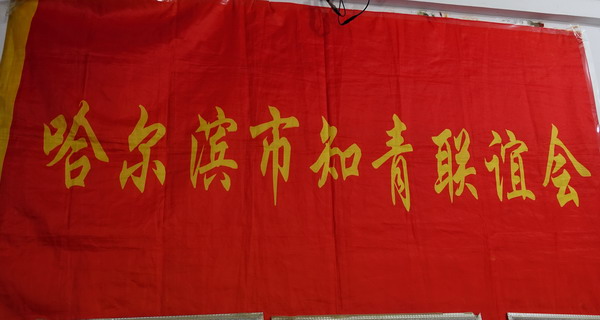 哈尔滨市知青联谊会